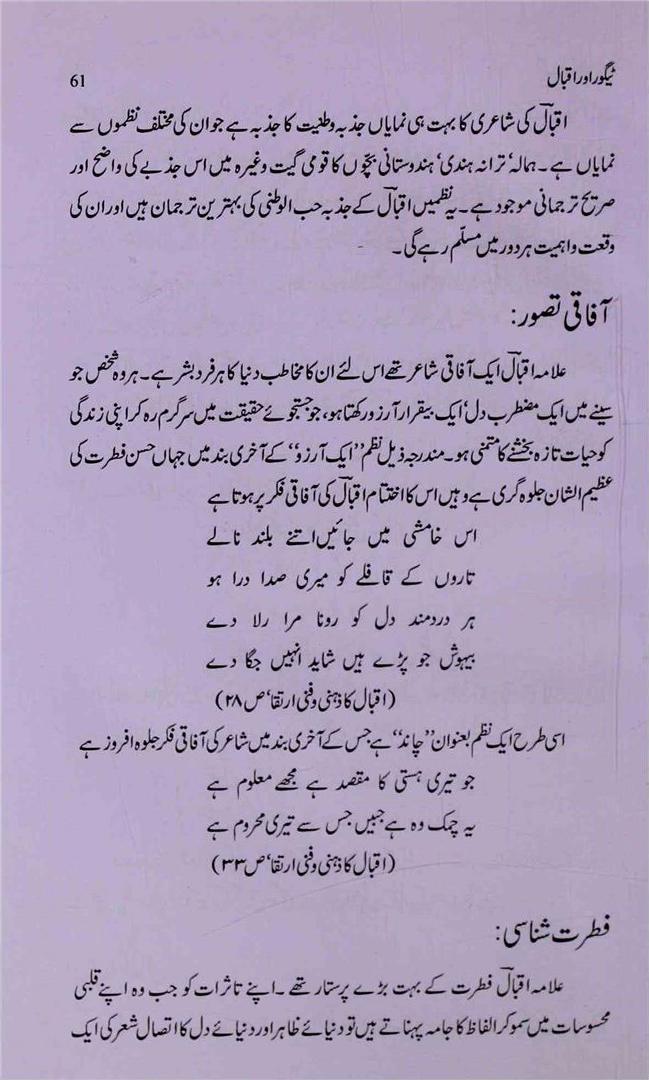 ٹیگور اور اقبال 61
اقبالؔ کی شاعری کا بہت ہی نمایاں جذبہ وطنیت کا جذبہ ہے جو ان کی مختلف نظموں سے
نمایاں ہے۔ ہمالہ، ترانہ ہندی، ہندوستانی بچّوں کا قومی گیت وغیرہ میں اس جذبے کی واضح اور
صریح ترجمانی موجود ہے۔ یہ نظمیں اقبالؔ کے جذبہ حب الوطنی کی بہترین ترجمان ہیں اور ان کی
وقعت و اہمیت ہر دور میں مسلّم رہے گی۔
آفاقی تصور:
علامہ اقبالؔ ایک آفاقی شاعر تھے اس لئے ان کا مخاطب دنیا کا ہر فرد بشر ہے۔ ہر وہ شخص جو
سینے میں ایک مضطرب دل، ایک بیقرار آرزو رکھتا ہو، جو جستجوئے حقیقت میں سرگرم رہ کر اپنی زندگی
کو حیات تازہ بخشنے کا متمنی ہو۔ مندرجہ ذیل نظم ”ایک آرزو“ کے آخری بند میں جہاں حسن فطرت کی
عظیم الشان جلوہ گری ہے وہیں اس کا اختتام اقبالؔ کی آفاقی فکر پر ہوتا ہے
اس خامشی میں جائیں اتنے بلند نالے
تاروں کے قافلے کو میری صدا درا ہو
ہر دردمند دل کو رونا مرا رلا دے
بیہوش جو پڑے ہیں شاید انہیں جگا دے
(اقبال کا ذہنی و فنی ارتقا، ص ۲۸)
اسی طرح ایک نظم بعنوان ”چاند“ ہے جس کے آخری بند میں شاعر کی آفاقی فکر جلوہ افروز ہے
جو تیری ہستی کا مقصد ہے مجھے معلوم ہے
یہ چمک وہ ہے جبیں جس سے تیری محروم ہے
(اقبال کا ذہنی و فنی ارتقا، ص ۳۳)
فطرت شناسی:
علامہ اقبالؔ فطرت کے بہت بڑے پرستار تھے۔ اپنے تاثرات کو جب وہ اپنے قلبی
محسوسات میں سمو کر الفاظ کا جامہ پہناتے ہیں تو دنیائے ظاہر اور دنیائے دل کا اتصال شعر کی ایک